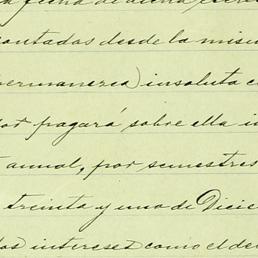 la fecha de dicha escri
contadas desde la mism
permanezca) insoluta c
or pagará sobre ella in
t anual, por semestres
treinta y uno de Dicie
los intereses como el de